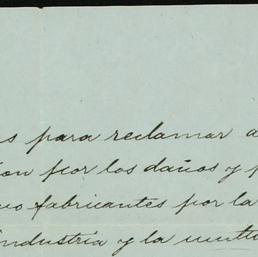 s para reclamar a
ion por los daños y p
uo fabricantes por la
industria y la